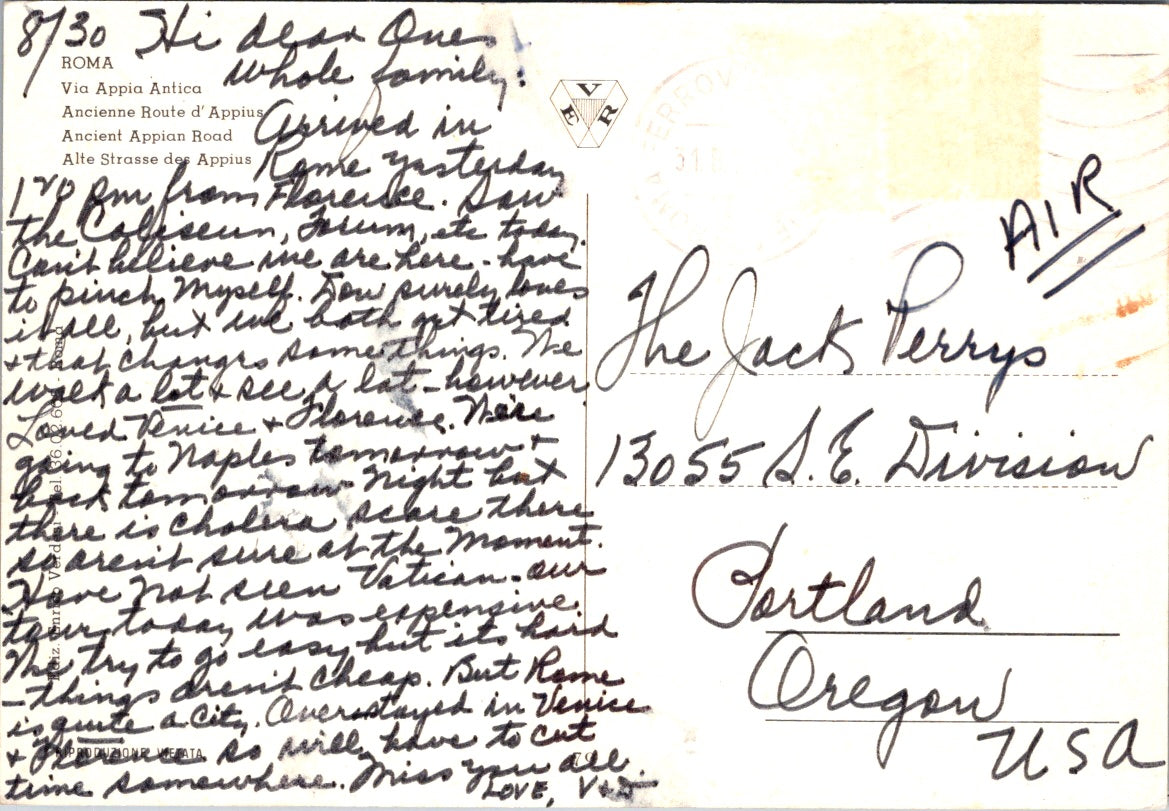 8/30 Hi dear Ones
Whole family:
ROMA
Via Appia Antica
Ancienne Route d' Appius
Ancient Appian Road
Alte Strasse des Appius
Arrived in
Rome yesterday
1 20 pm from Florence. Saw
the Coliseum, Forum, etc today.
Can't believe we are here - have
to pinch myself. Dow surely loves
it all, but we both get tired
+ that changes some things. We
walk a lot + see a lot - however
Loved Venice + Florence. We're
going to Naples tomorrow +
back tomorrow night but
there is cholera scare there
so aren't sure at the moment.
Have not seen Vatican - our
tour today was expensive.
We try to go easy but its hard
- things aren't cheap. But Rome
is quite a city. Overstayed in Venice
+ Florence so will have to cut
time somewhere. Miss you all.
LOVE, V+D
RIPRODUZIONE VIETATA
VER
FERROV
31
AIR
The Jack Perrys
13055 S.E. Division
Portland
Oregon
USA